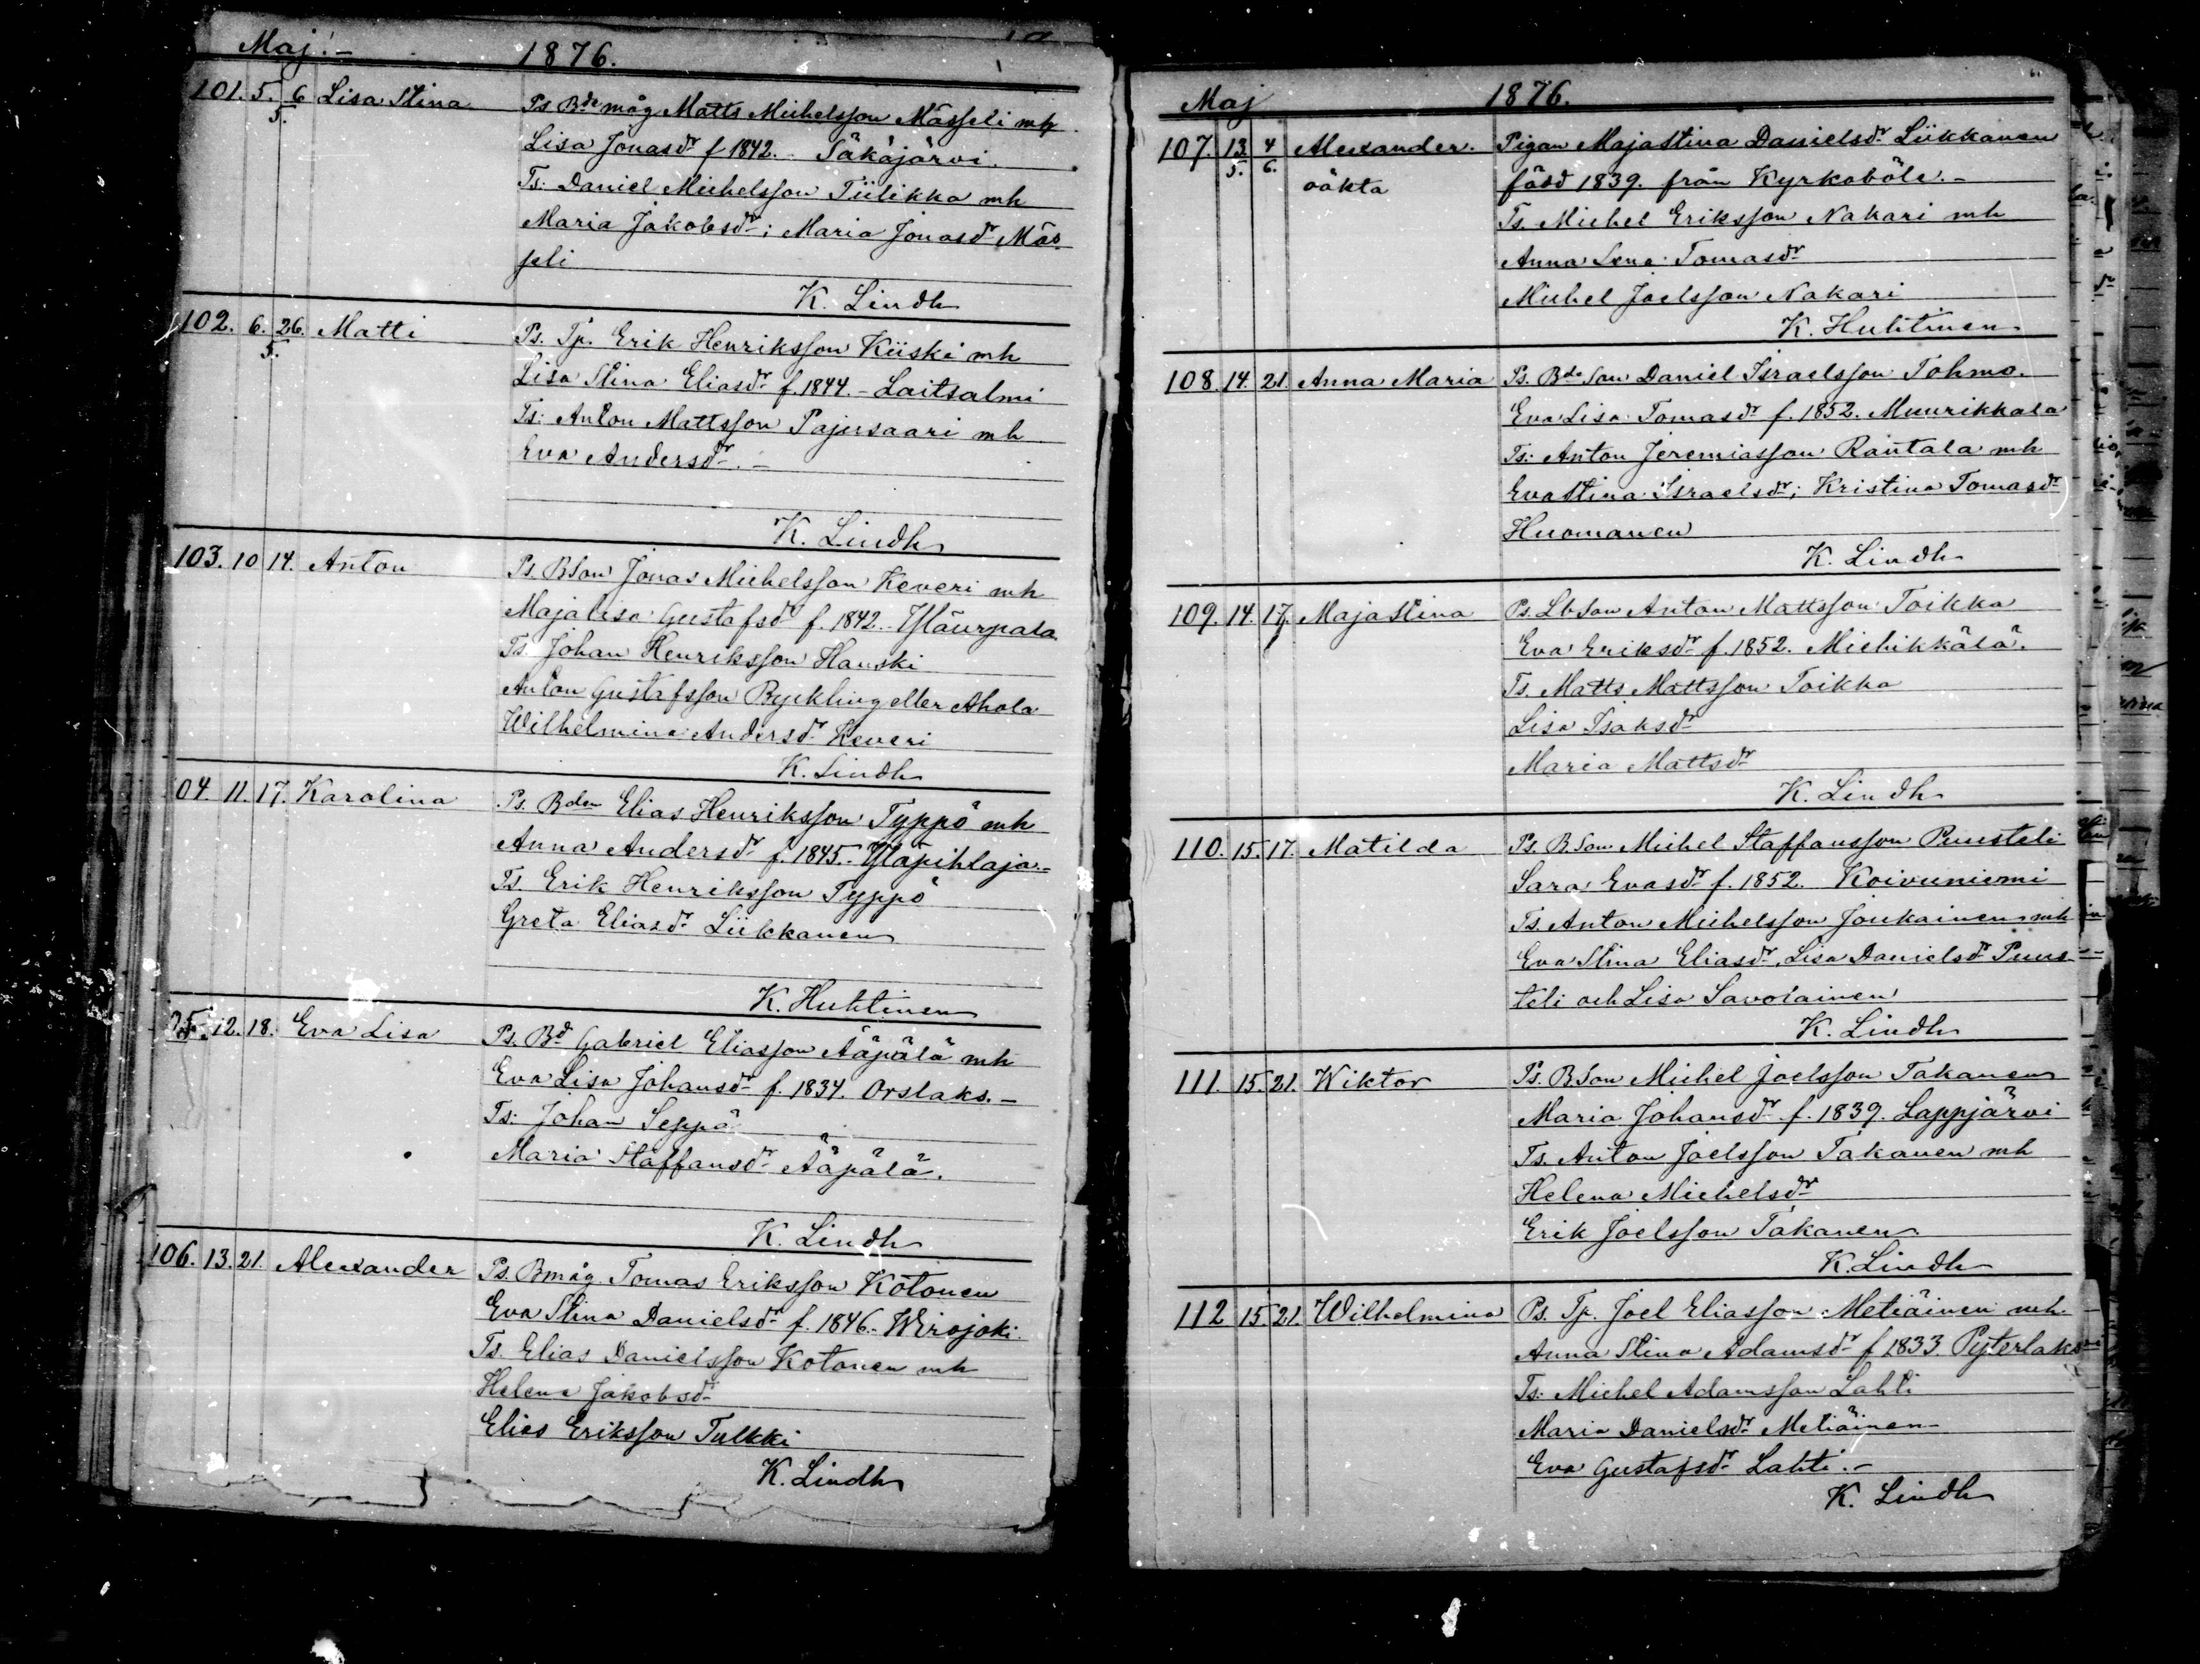 Maj. — 1876.
101. 5. 6/5. Lisa Stina Ps. Bde måg Matts Michelsson Mässeli mh
Lisa Jonasdr f 1842. Säkäjärvi.
Ts: Daniel Michelsson Tiilikka mh
Maria Jakobsdr; Maria Jonasdr Mäs-
seli
K. Lindh
102. 6. 26/5. Matti Ps. Tp. Erik Henriksson Kiiski mh
Lisa Stina Eliasdr f. 1844. - Laitsalmi
Ts: Anton Mattsson Pajusaari mh
Eva Andersdr. —
K. Lindh
103. 10 14. Anton Ps. BSon Jonas Michelsson Keveri mh
Maja Lisa Gustafsdr f. 1842. Yläurpala
Ts. Johan Henriksson Hanski
Anton Gustafsson Byckling eller Ahola
Wilhelmina Andersdr Keveri
K. Lindh
04. 11. 17. Karolina Ps. Bden Elias Henriksson Typpö mh
Anna Andersdr f. 1845. Yläpihlaja. -
Ts. Erik Henriksson Typpö
Greta Eliasdr Liikkanen
K. Huhtinen
05. 12. 18. Eva Lisa Ps. Bd Gabriel Eliasson Ääpälä mh
Eva Lisa Johansdr f. 1834. Orslaks. —
Ts: Johan Seppä
Maria Staffansdr Ääpälä.
K. Lindh
106. 13. 21. Alexander Ps. Bmåg Tomas Eriksson Kotonen
Eva Stina Danielsdr f. 1846. Wirojoki.
Ts. Elias Danielsson Kotonen mh
Helena Jakobsdr
Elias Eriksson Tulkki
K. Lindh
Maj 1876.
107. 13/5. 4/6. Alexander. Pigan Maja Stina Danielsdr Liikkanen
oäkta född 1839. från Kyrkoböle. —
Ts. Michel Eriksson Nakari mh
Anna Lena Tomasdr
Michel Joelsson Nakari
K. Huhtinen
108. 14. 21. Anna Maria Ps. Bde Son Daniel Israelsson Tohmo.
Eva Lisa Tomasdr f. 1852. Muurikkala
Ts: Anton Jeremiasson Rantala mh
Eva Stina Israelsdr; Kristina Tomasdr
Huomanen
K. Lindh
109. 14. 17. Maja Stina Ps. Lb Son Anton Mattsson Toikka
Eva Eriksdr f. 1852. Miehikkälä.
Ts. Matts Mattsson Toikka
Lisa Isaksdr
Maria Mattsdr
K. Lindh
110. 15. 17. Matilda Ps. B.Son Michel Staffansson Puusteli
Sara Evasdr f. 1852. Koivuniemi
Ts. Anton Michelsson Joukainen mh
Eva Stina Eliasdr, Lisa Danielsdr Puus-
teli och Lisa Savolainen
K. Lindh
111. 15. 21. Wiktor Ps. BSon Michel Joelsson Takanen
Maria Johansdr f. 1839. Lappjärvi
Ts. Anton Joelsson Takanen mh
Helena Michelsdr
Erik Joelsson Takanen
K. Lindh
112 15. 21. Wilhelmina Ps. Tp. Joel Eliasson Metiäinen mh.
Anna Stina Adamsdr f 1833. Pyterlaks
Ts: Michel Adamsson Lahti
Maria Danielsdr Metiäinen
Eva Gustafsdr Lahti. —
K. Lindh